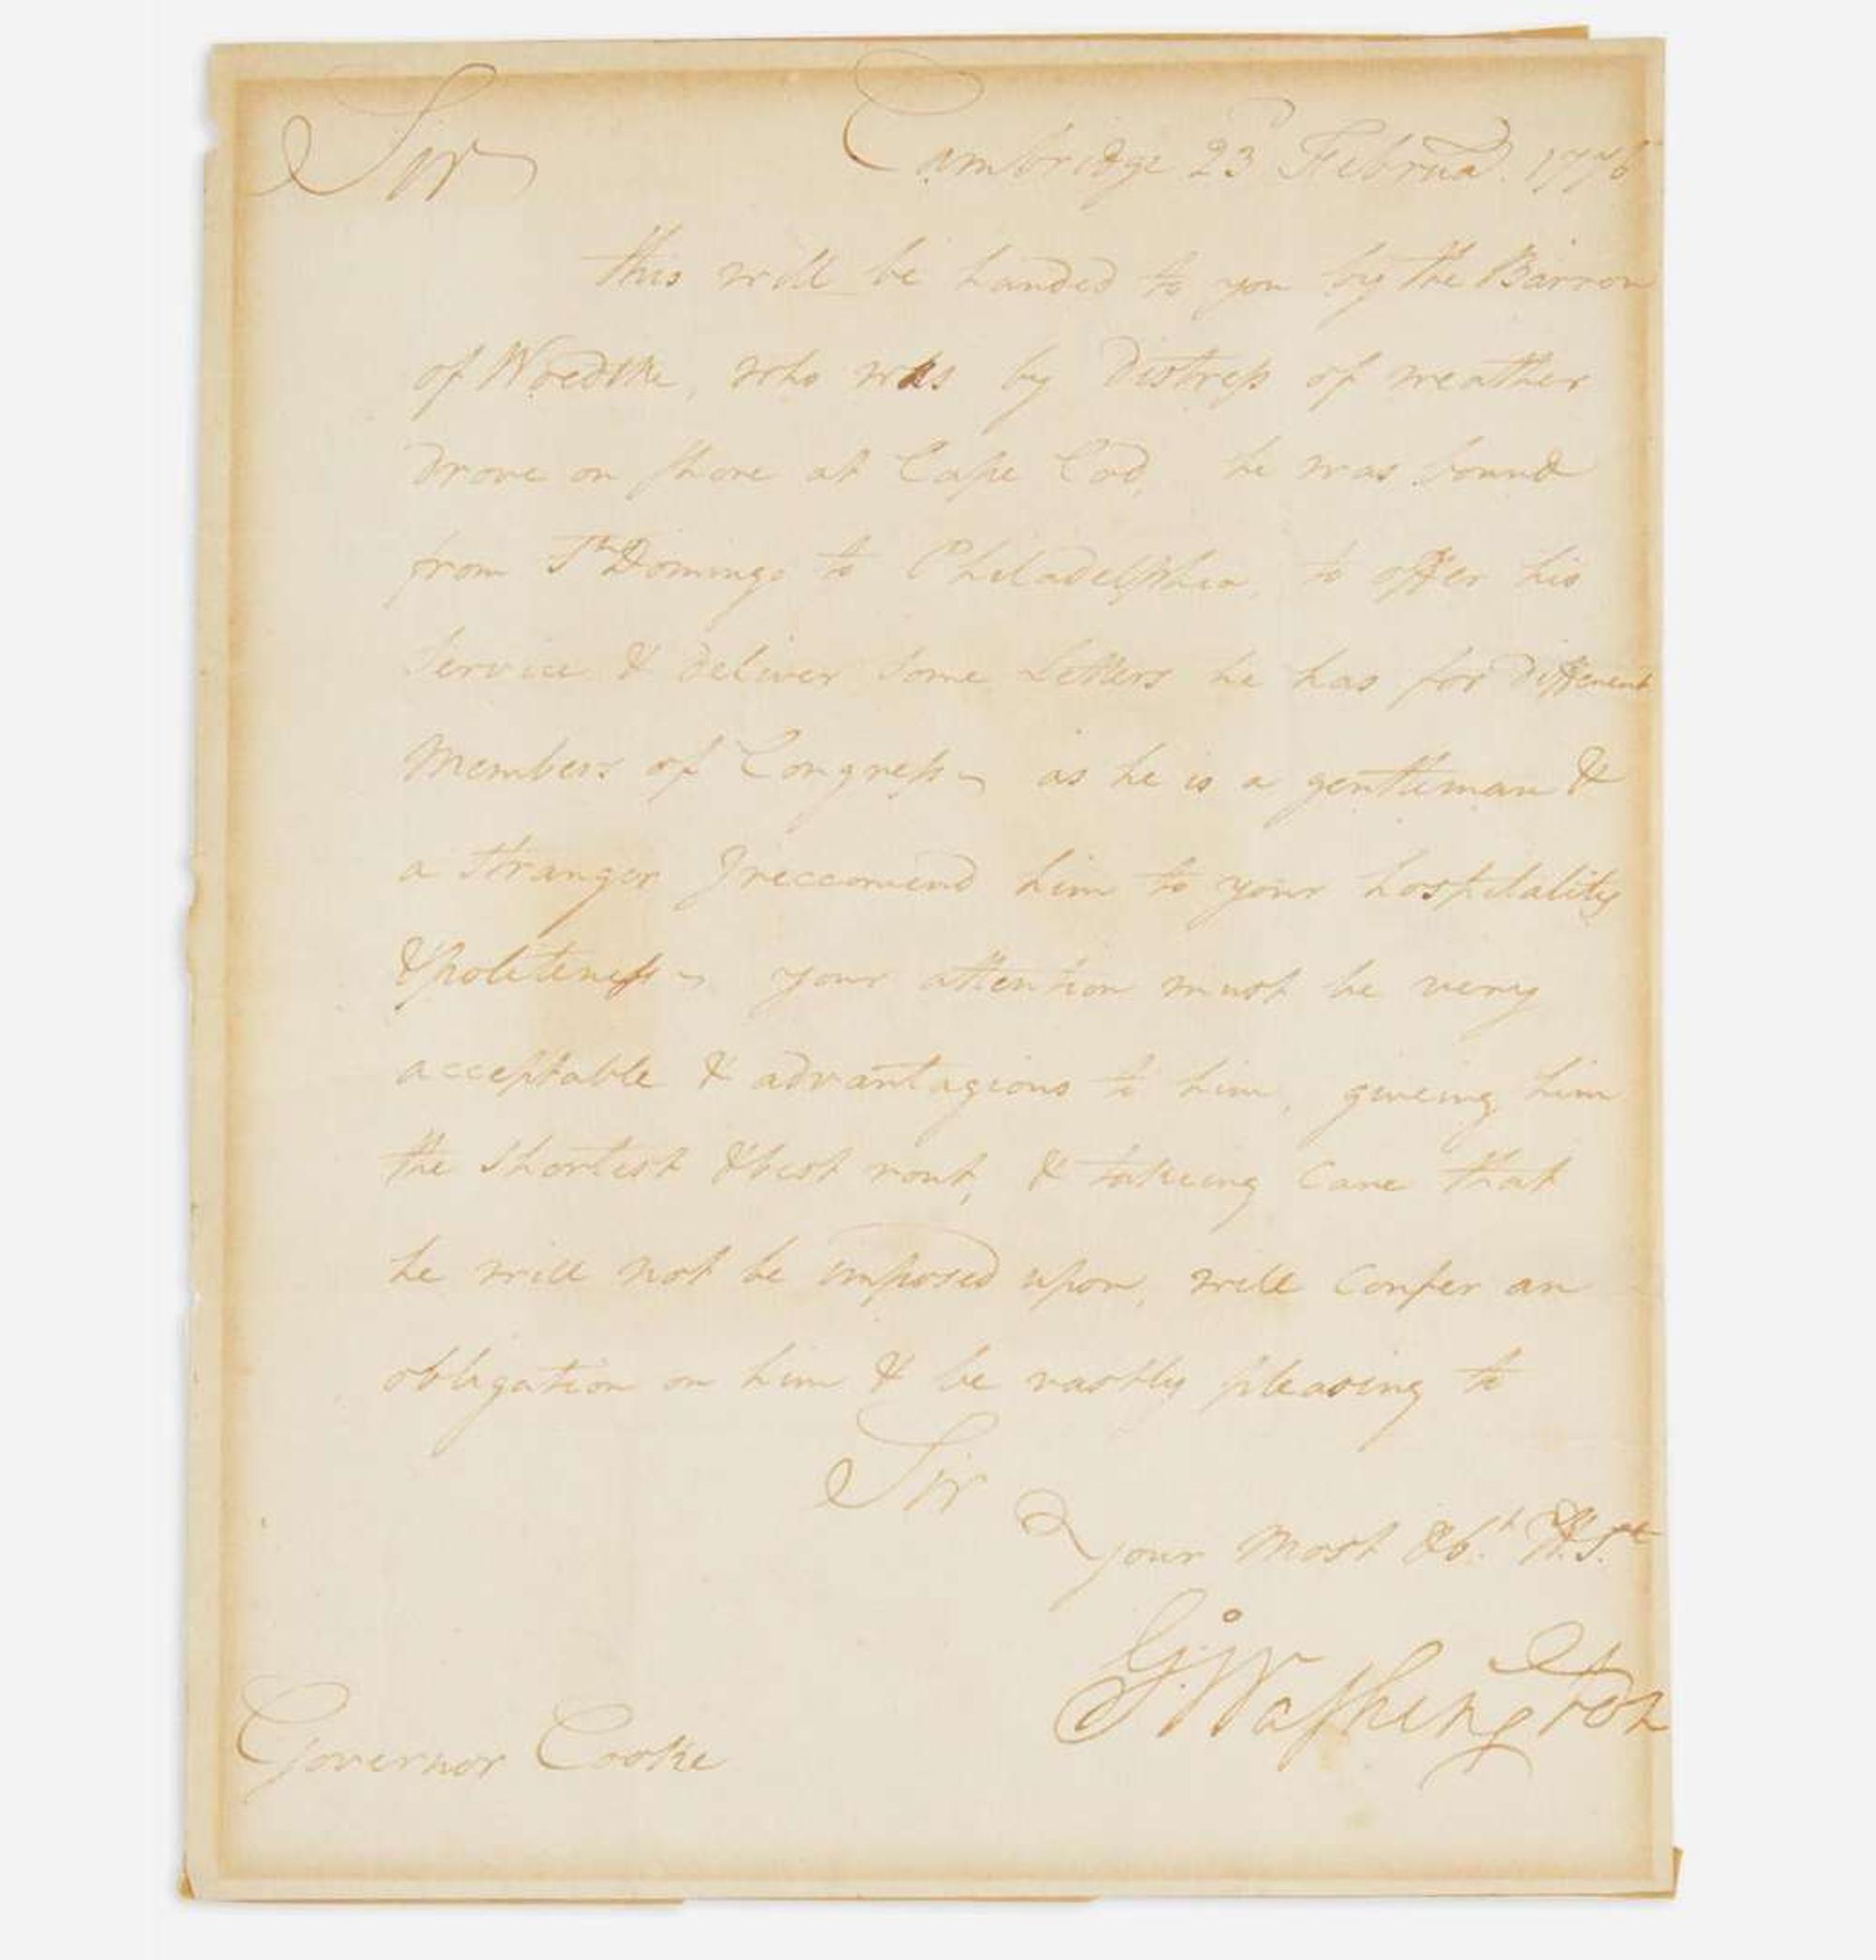 Sir Cambridge 23d Februa. 1776
this will be handed to you by the Barron
of Woedtke, who was by distress of weather
drove on shore at Cape Cod, he was bound
from St Domingo to Philadelphia, to offer his
Service & deliver some Letters he has for different
Members of Congress – as he is a gentleman &
a stranger I reccomend him to your hospitality
& politeness – your attention must be very
acceptable & advantagious to him, giveing him
the shortest & best rout, & takeing care that
he will not be imposed upon, will confer an
obligation on him & be vastly pleasing to
Sir
your most Ob.t H. S.t
Go: Washington
Governor Cooke